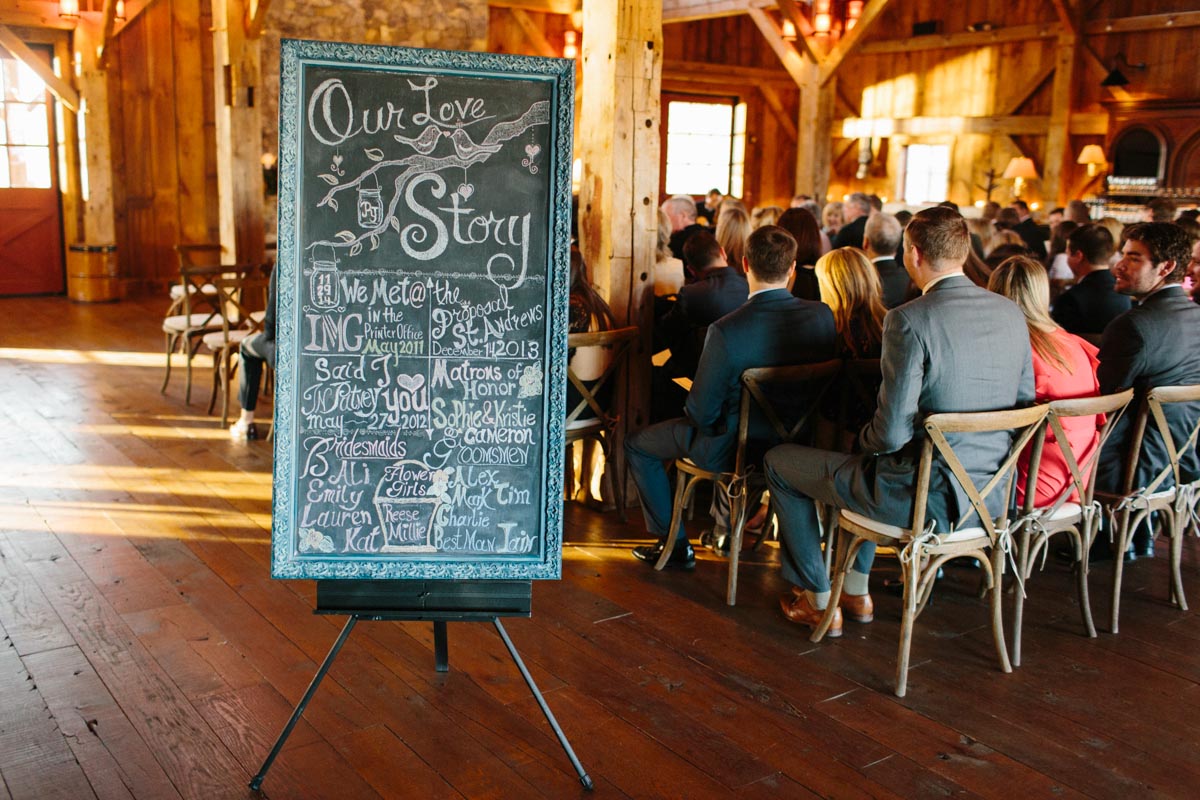 Our Love
Story
We Met @
IMG
in the
Printer Office
May 2011
the
Proposal
St. Andrews
December 14 2013
Said I
♥
you
May 27th 2012
Matrons of
Honor
Sophie & Kristie
Cameron
Bridesmaids
Ali
Emily
Lauren
Kat
Flower
Girls
Reese
Millie
Groomsmen
Alex
Mark Tim
Charlie
Best Man Iain